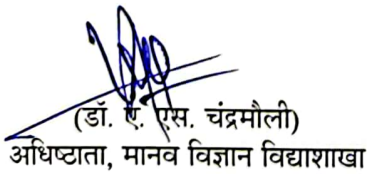 (डॉ. ए. एस. चंद्रमौली)
अधिष्टाता, मानव विज्ञान विद्याशाखा